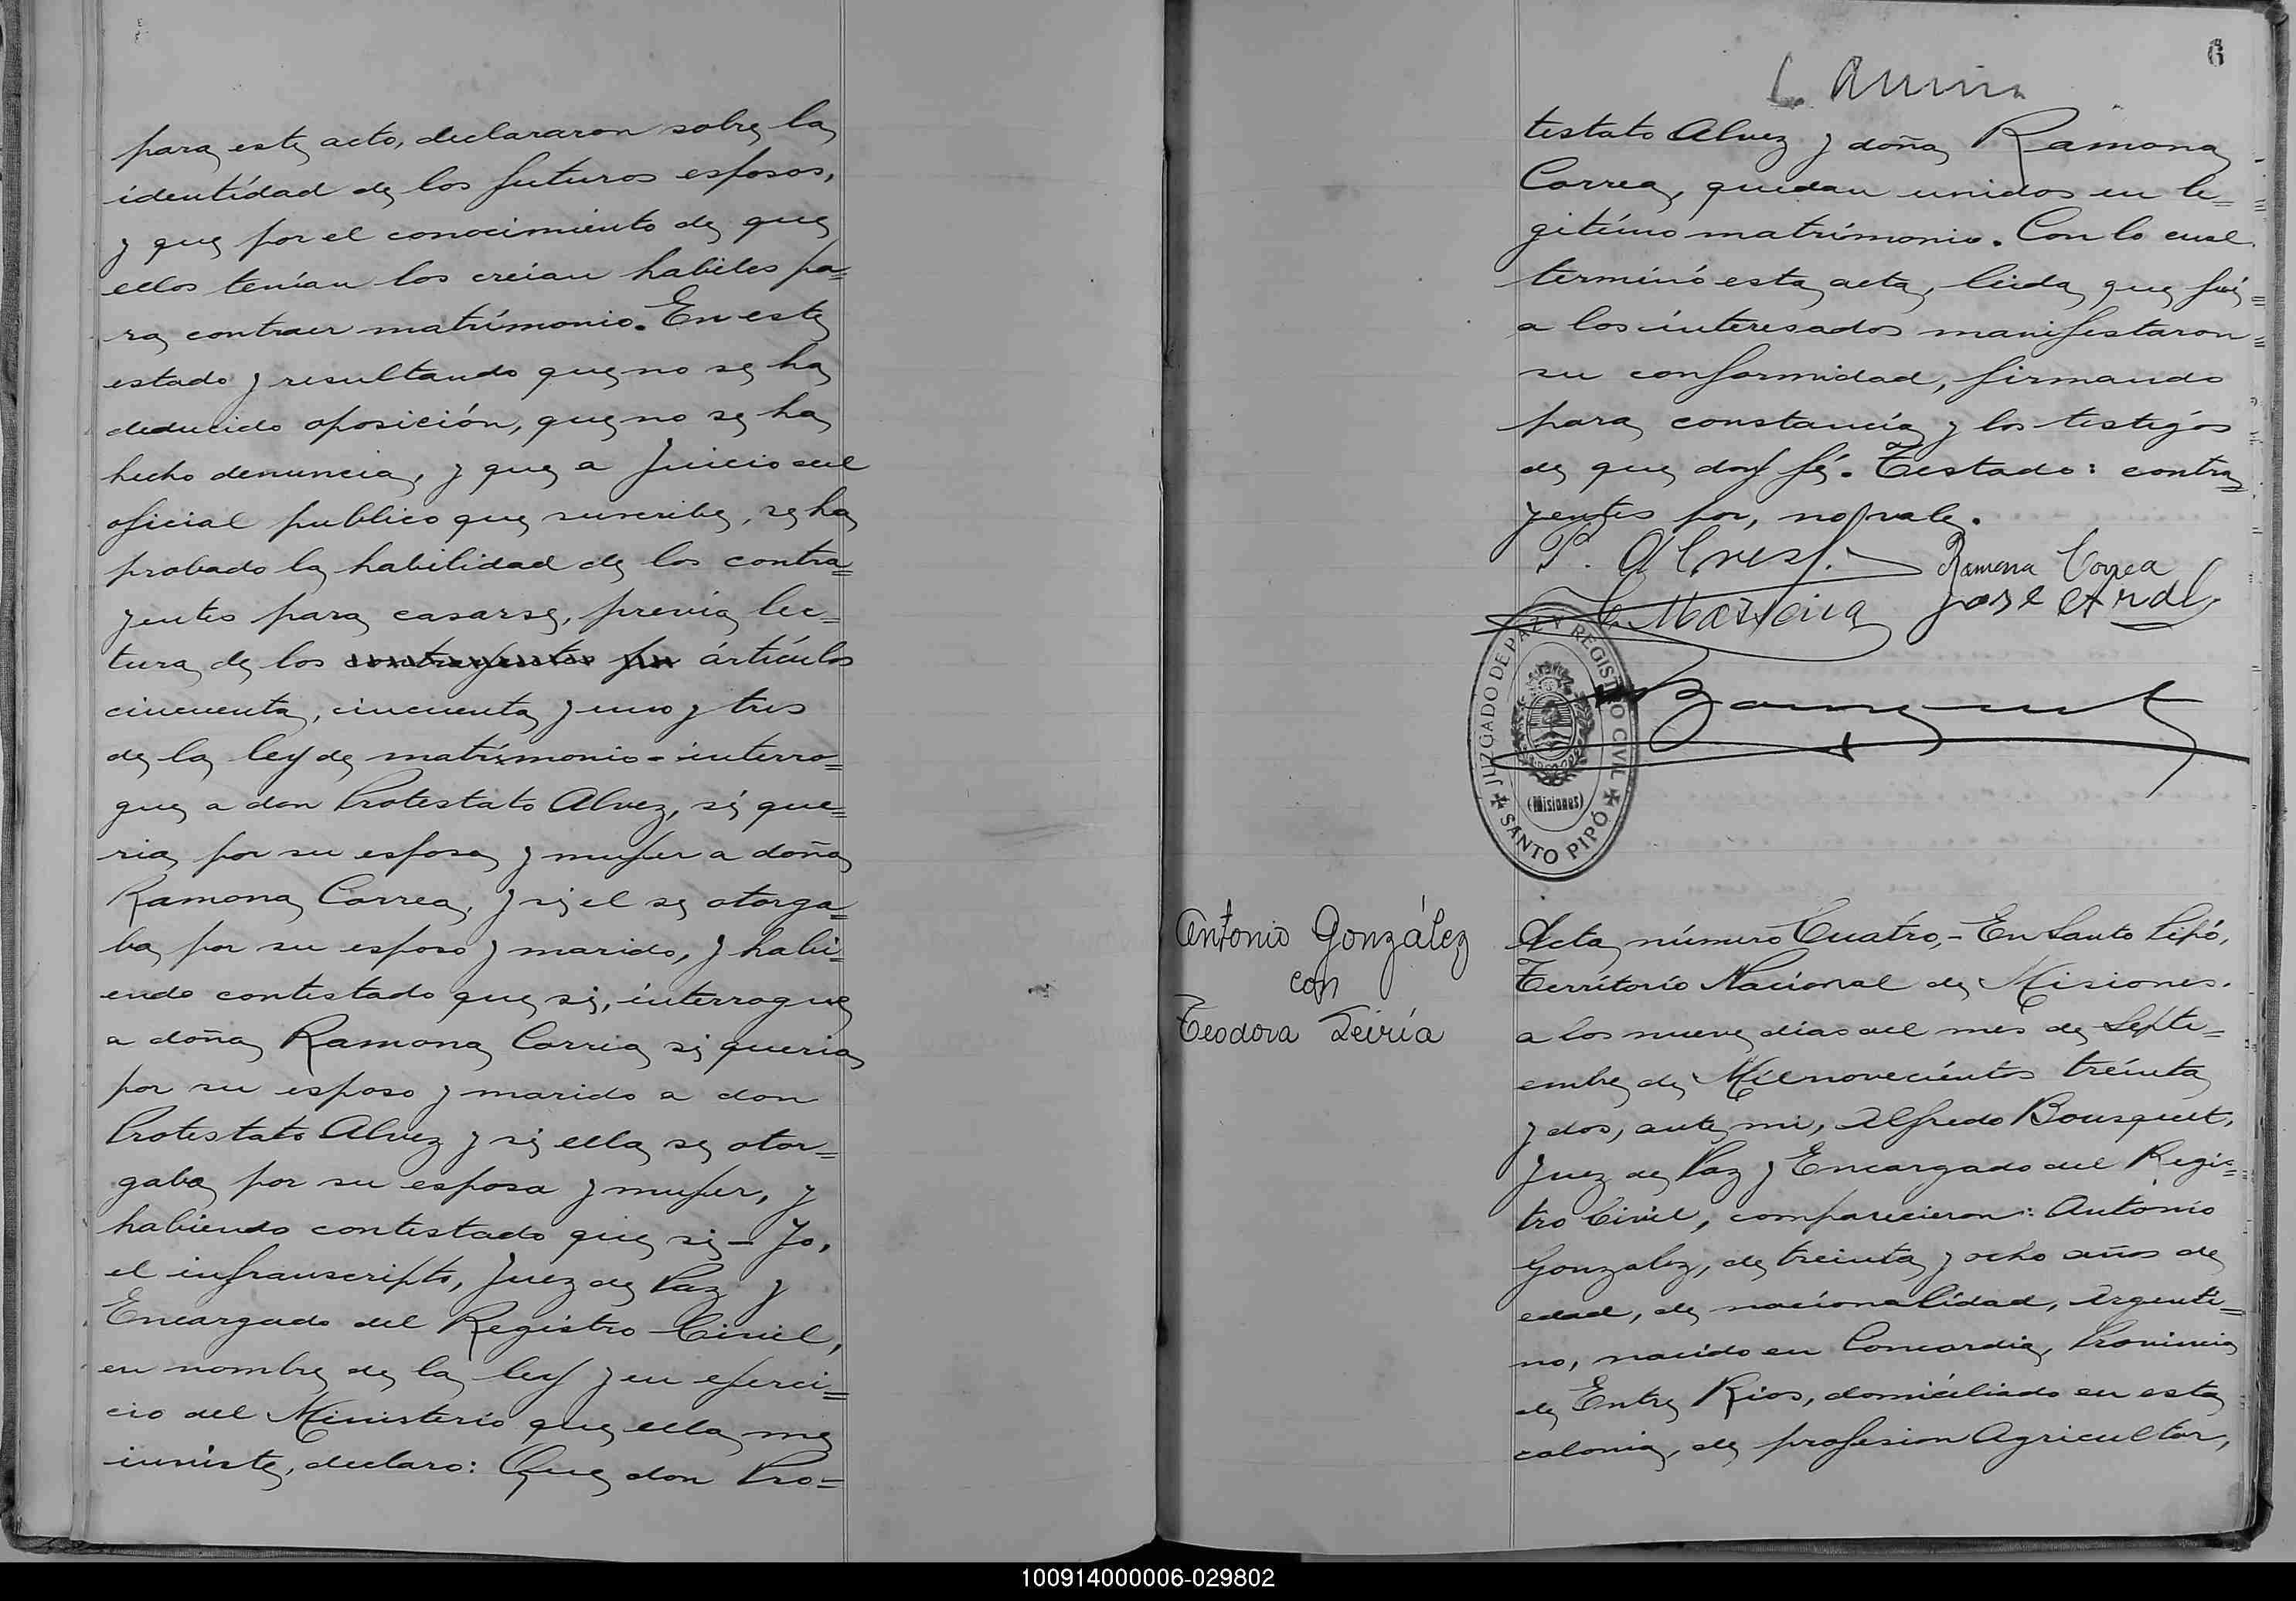 para este acto, declararon sobre la
identidad de los futuros esposos,
y que por el conocimiento de que
ellos tenían los creían habiles pa=
ra contraer matrimonio. En este
estado y resultando que no se ha
deducido oposición, que no se ha
hecho denuncia, y que a juicio del
oficial publico que suscribe, se ha
probado la habilidad de los contra=
yentes para casarse, previa lec=
tura de los contrayentes por artículos
cincuenta, cincuenta y uno y tres
de la ley de matrimonio - interro=
gue a don Protestato Alvez, si que=
ria por su esposa y mujer a doña
Ramona Correa, y si el se otorga=
ba por su esposo y marido, y habi=
endo contestado que si, interrogue
a doña Ramona Correa si queria
por su esposo y marido a don
Protestato Alvez y si ella se otor=
gaba por su esposa y mujer, y
habiendo contestado que si - Yo,
el infranscripto, Juez de Paz y
Encargado del Registro Civil,
en nombre de la ley y en ejerci=
cio del Ministerio que ella me
inviste, declaro: Que don Pro=
6
testato Alvez y doña Ramona
Correa, quedan unidos en le=
gitimo matrimonio. Con lo cual
terminó esta acta, leida que fué
a los interesados manifestaron
su conformidad, firmando
para constancia y los testigos
de que doy fé. Testado: contra
yentes por, no vale.
Ramona Correa
José
JUZGADO DE PAZ Y REGISTRO CIVIL
(Misiones)
SANTO PIPÓ
Antonio González
con
Teodora Leiría
Acta número Cuatro, - En Santo Pipó,
Territorio Nacional de Misiones.
a los nueve días del mes de Septi=
embre de Mil novecientos treinta
y dos, ante mi, Alfredo Bousquet,
Juez de Paz y Encargado del Regis=
tro Civil, comparecieron: Antonio
Gonzalez, de treinta y ocho años de
edad, de nacionalidad, Argenti=
no, nacido en Concordia, Provincia
de Entre Rios, domiciliado en esta
colonia, de profesion Agricultor,
100914000006-029802